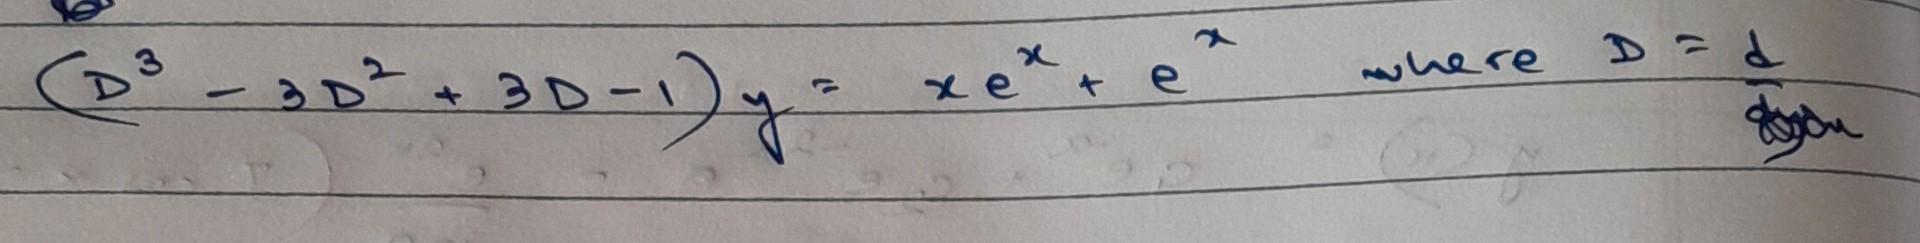 (D³ - 3D² + 3D - 1) y = xeˣ + eˣ where D = d/dx